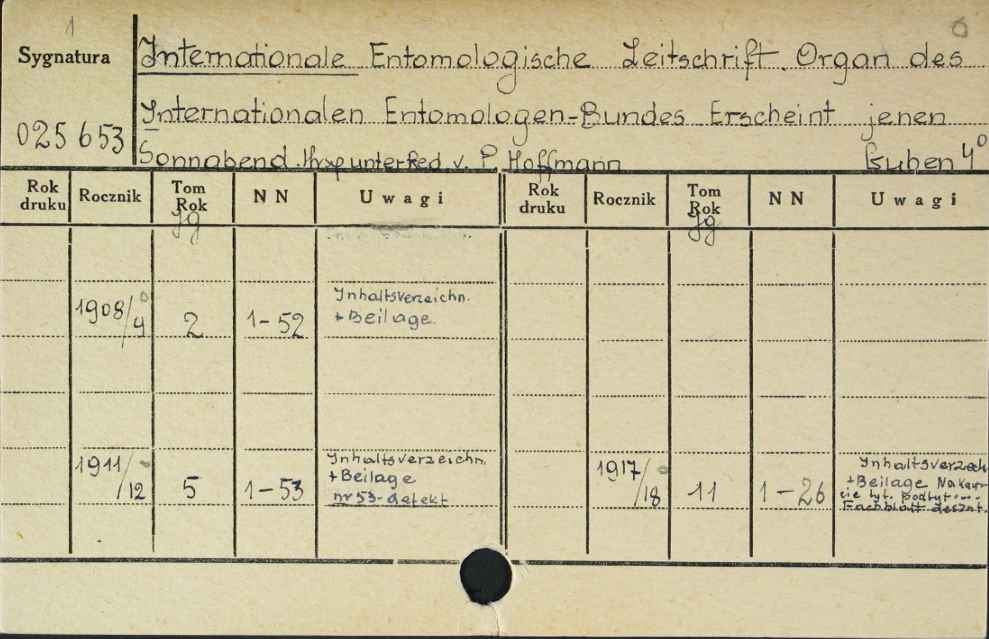 1
6
Sygnatura
Internationale Entomologische Zeitschrift. Organ des
Internationalen Entomologen-Bundes Erscheint jenen
025653
Sonnabend. unter Red. v. P. Hoffmann
Guben 4°
Rok druku Rocznik Tom Rok NN Uwagi Rok druku Rocznik Tom Rok NN Uwagi
Jg Jg
1908/9 2 1-52 Inhaltsverzeichn.
+ Beilage.
1911/12 5 1-53 Inhaltsverzeichn.
+Beilage
nr 53-defekt
1917/18 11 1-26 Inhaltsverzeich
+Beilage
Fachblatt